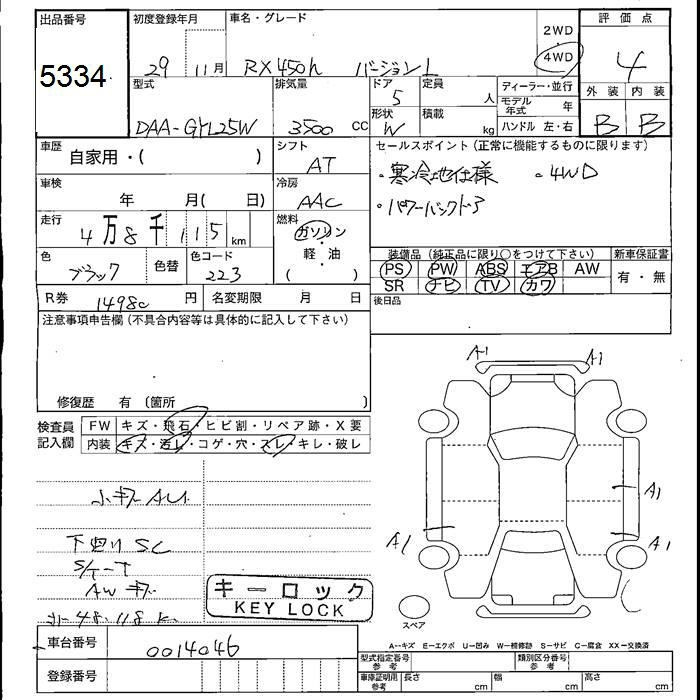 出品番号 初度登録年月 車名・グレード 2WD 評価点
5334 29 11月 RX450h バージョンL 4WD 4
型式 排気量 ドア 5 定員 人 ディーラー・並行 外装 内装
モデル年式 年
DAA-GYL25W 3500 CC 形状 W 積載 kg ハンドル 左・右 B B
車歴 自家用・( ) シフト AT セールスポイント(正常に機能するものに限ります)
車検 年 月( 日) 冷房 AAC ・寒冷地仕様 ・4WD
走行 4万8千115km 燃料 ガソリン ・パワーバックドア
軽・油
( )
色 ブラック 色替 色コード 223 装備品(純正品に限り○をつけて下さい) 新車保証書
PS PW ABS エアB AW 有・無
SR ナビ TV カワ
R券 14980円 名変期限 月 日 後日品
注意事項申告欄(不具合内容等は具体的に記入して下さい)
修復歴 有(箇所 )
検査員記入欄 FW キズ・飛石・ヒビ割・リペア跡・X要
内装 キズ・汚レ・コゲ・穴・スレ・キレ・破レ
A1 A1
A1
A1 A1
小キズAU
下回りSC
S/ケート
AWキズ
キーロック
KEY LOCK
スペア
車台番号 0014046
A―キズ E―エクボ U―凹み W―補修跡 S―サビ C―腐食 XX―交換済
登録番号
型式指定番号 参考 類別区分番号 参考
車庫証明用 参考 長さ cm 幅 cm 高さ cm